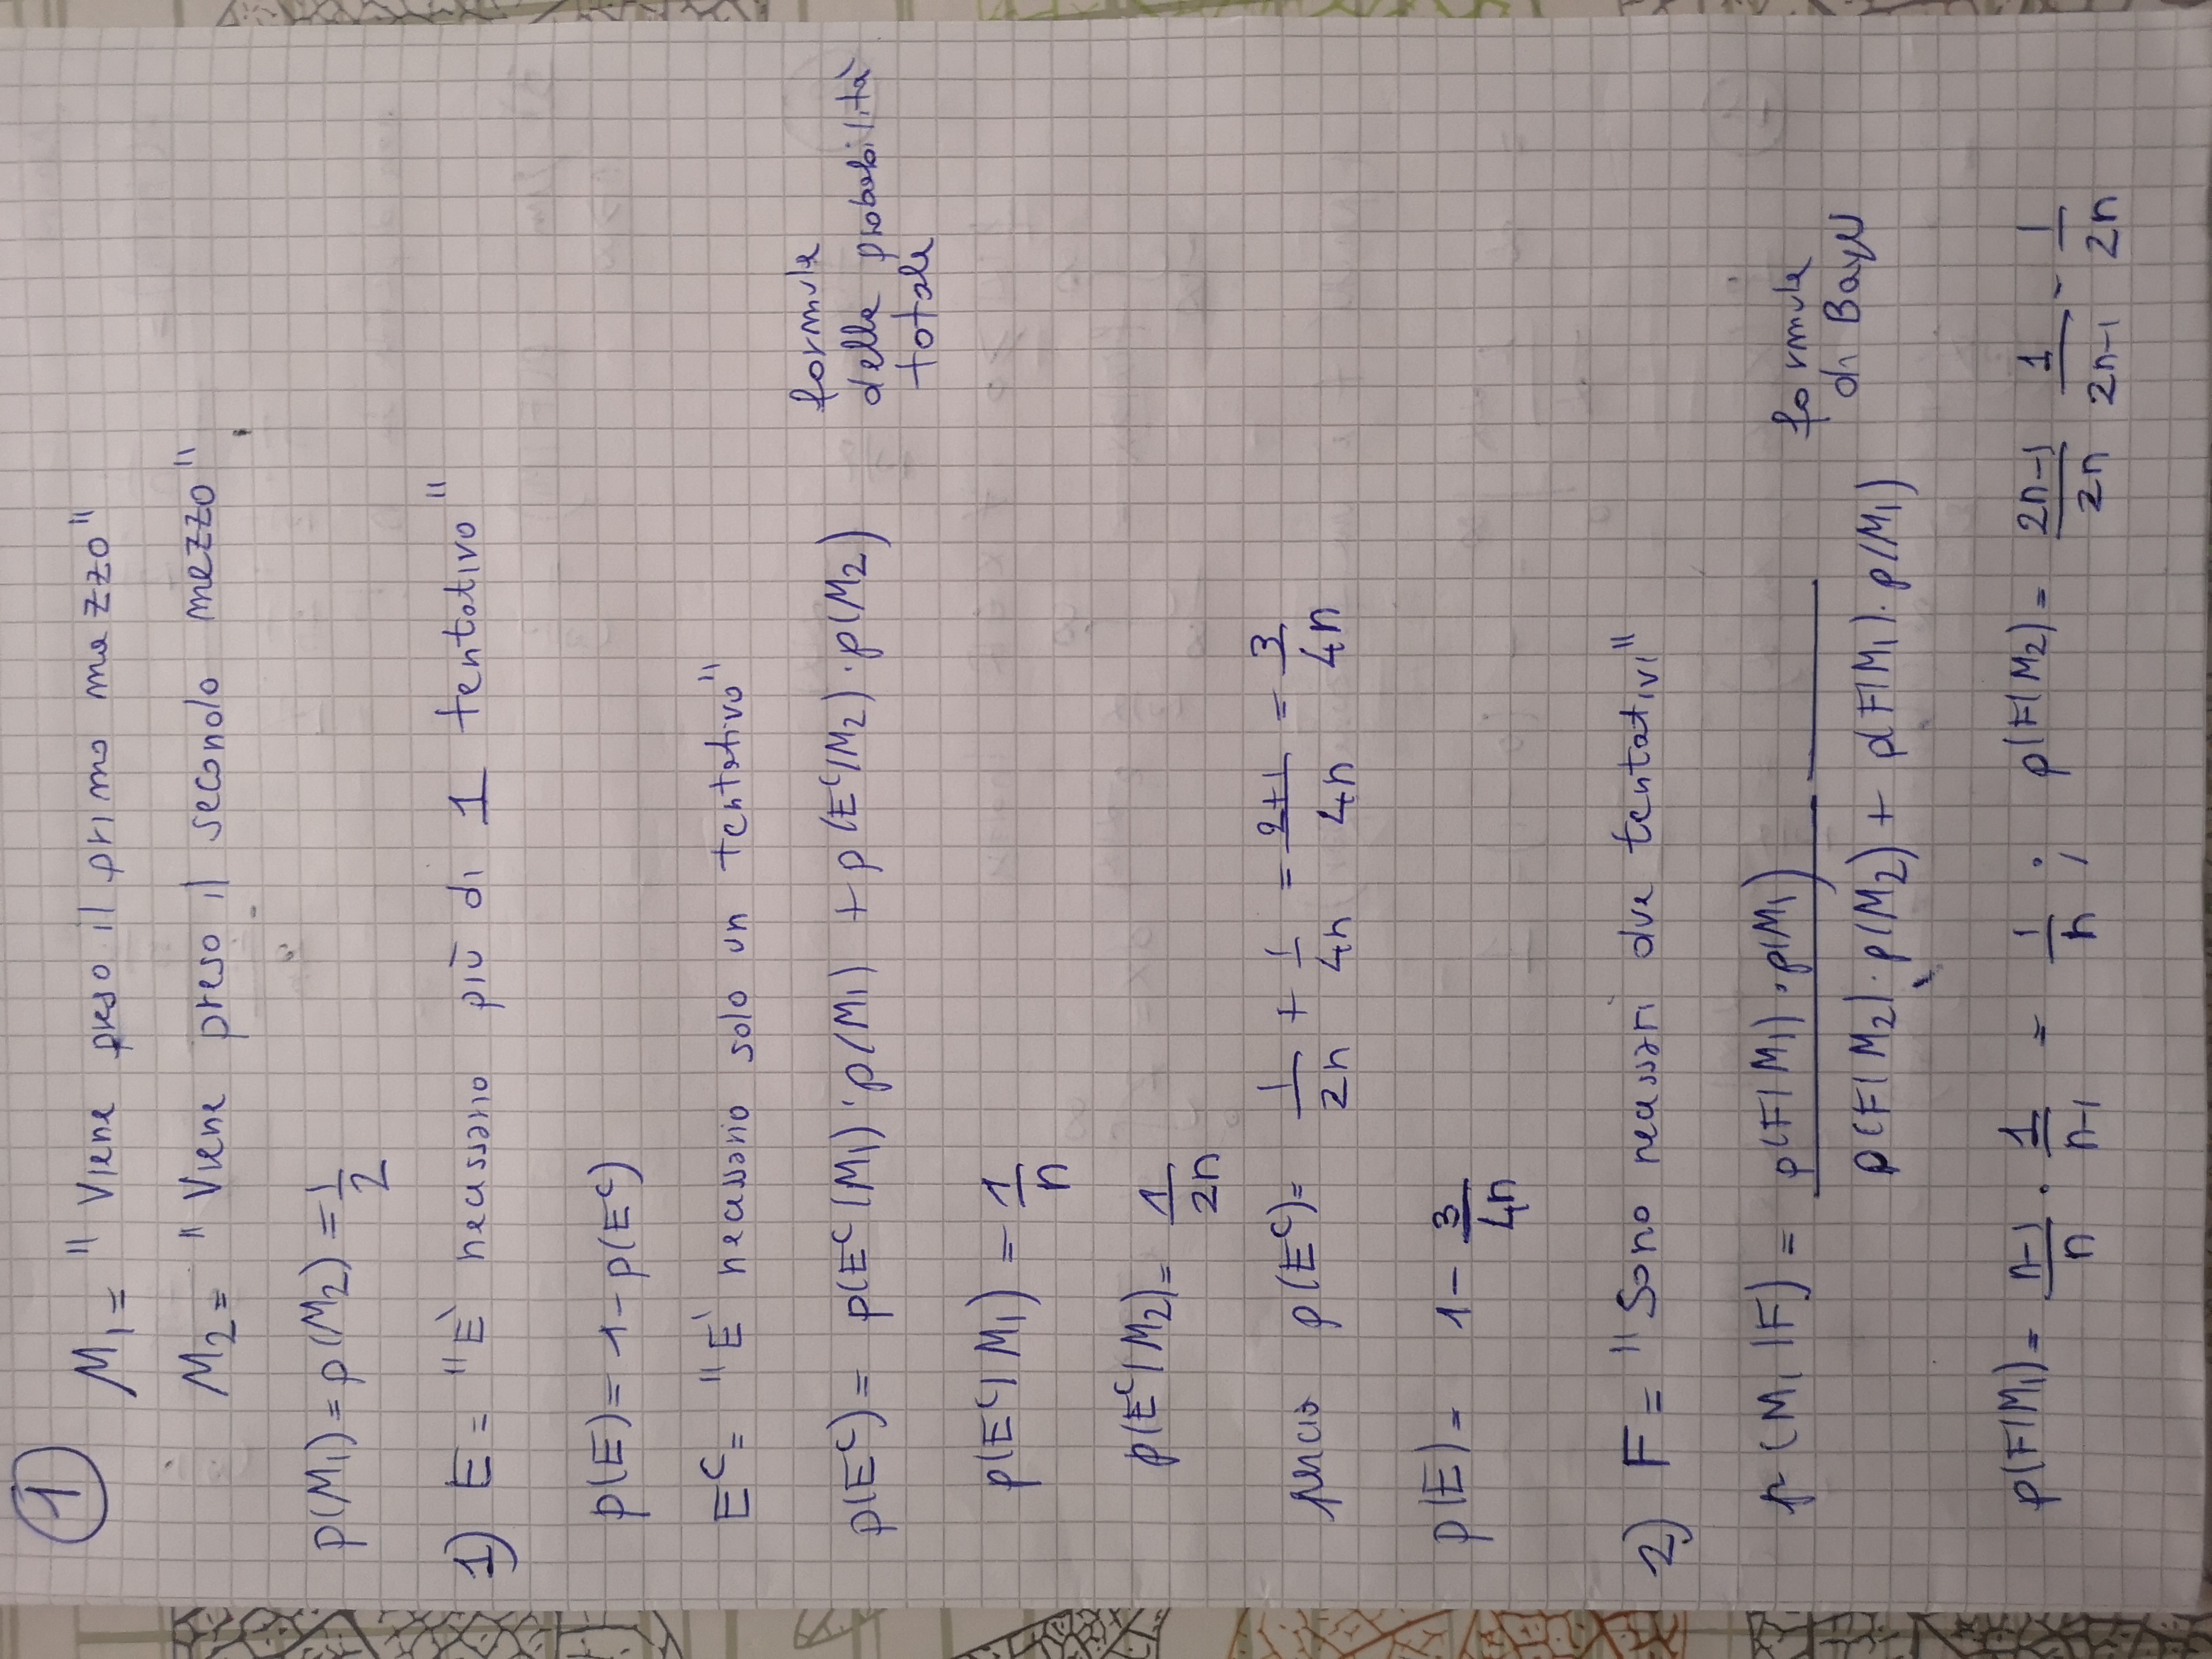 1
M₁ = "Viene preso il primo mazzo"
M₂ = "Viene preso il secondo mazzo"
p(M₁) = p(M₂) = 1/2
1) E = "E' necessario più di 1 tentativo"
p(E) = 1 - p(Eᶜ)
Eᶜ = "E' necessario solo un tentativo"
p(Eᶜ) = p(Eᶜ|M₁) · p(M₁) + p(Eᶜ|M₂) · p(M₂) formula
della probabilità
totale
p(Eᶜ|M₁) = 1/n
p(Eᶜ|M₂) = 1/2n
perciò p(Eᶜ) = 1/2n + 1/4n = 2+1/4n = 3/4n
p(E) = 1 - 3/4n
2) F = "Sono necessari due tentativi"
p(M₁|F) = p(F|M₁) · p(M₁) / p(F|M₂) · p(M₂) + p(F|M₁) · p(M₁) formula
di Bayes
p(F|M₁) = n-1/n · 1/n-1 = 1/n ; p(F|M₂) = 2n-1/2n 1/2n-1 = 1/2n